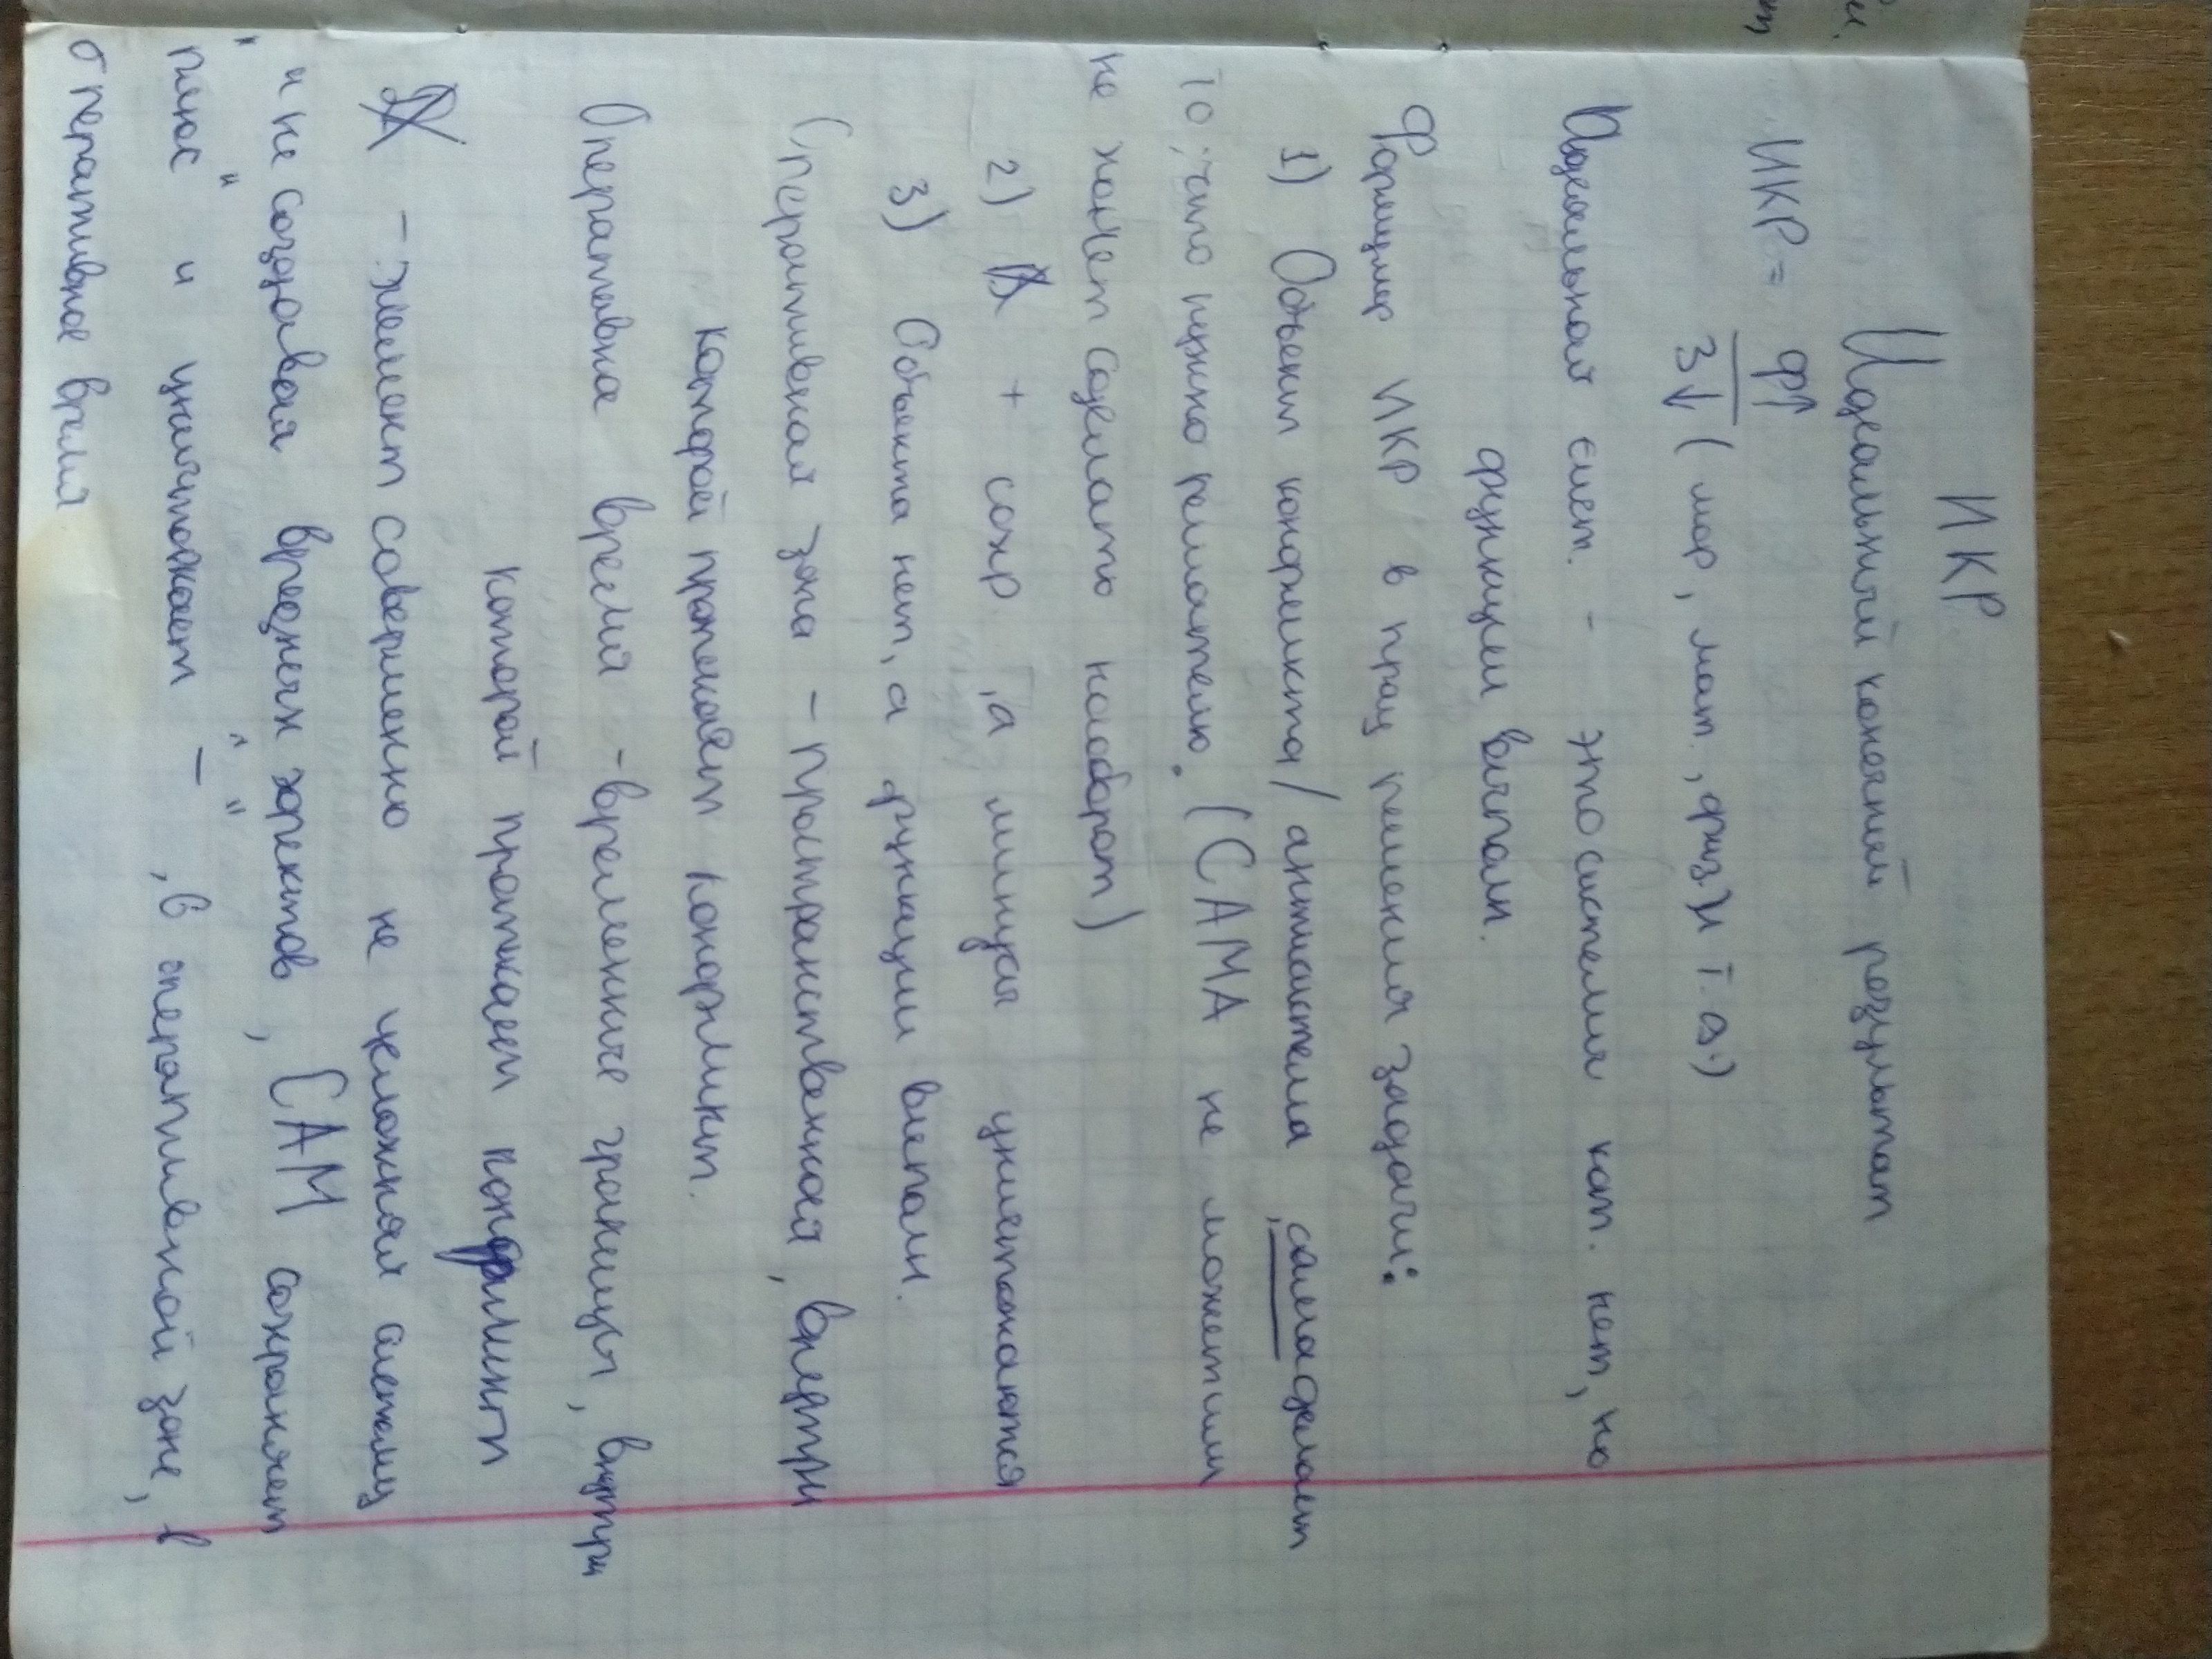 ИКР
Идеальный конечный результат
ИКР = Ф↑
З↓ (мор, мат., физ) и т. д.)
Идеальная сист. - это система кот. нет, но
функции выполн.
Формулир ИКР в проц решения задачи:
1) Объект конфликта/ антитела, сама делает
то, что нужно решателю. (САМА не может или
не хочет сделать наоборот)
2) + сохр , а минусы уничтожаются
3) Объекта нет, а функции выполн.
Оперативная зона - пространственная, внутри
которой протекает конфликт.
Оперативна время - временные границы, внутри
которой протекает конфликт
Х - элемент совершенно не усложняя систему
и не создавая вредных эффектов, САМ сохраняет
"плюс" и уничтожает "–", в оперативной зоне, в
оперативное время